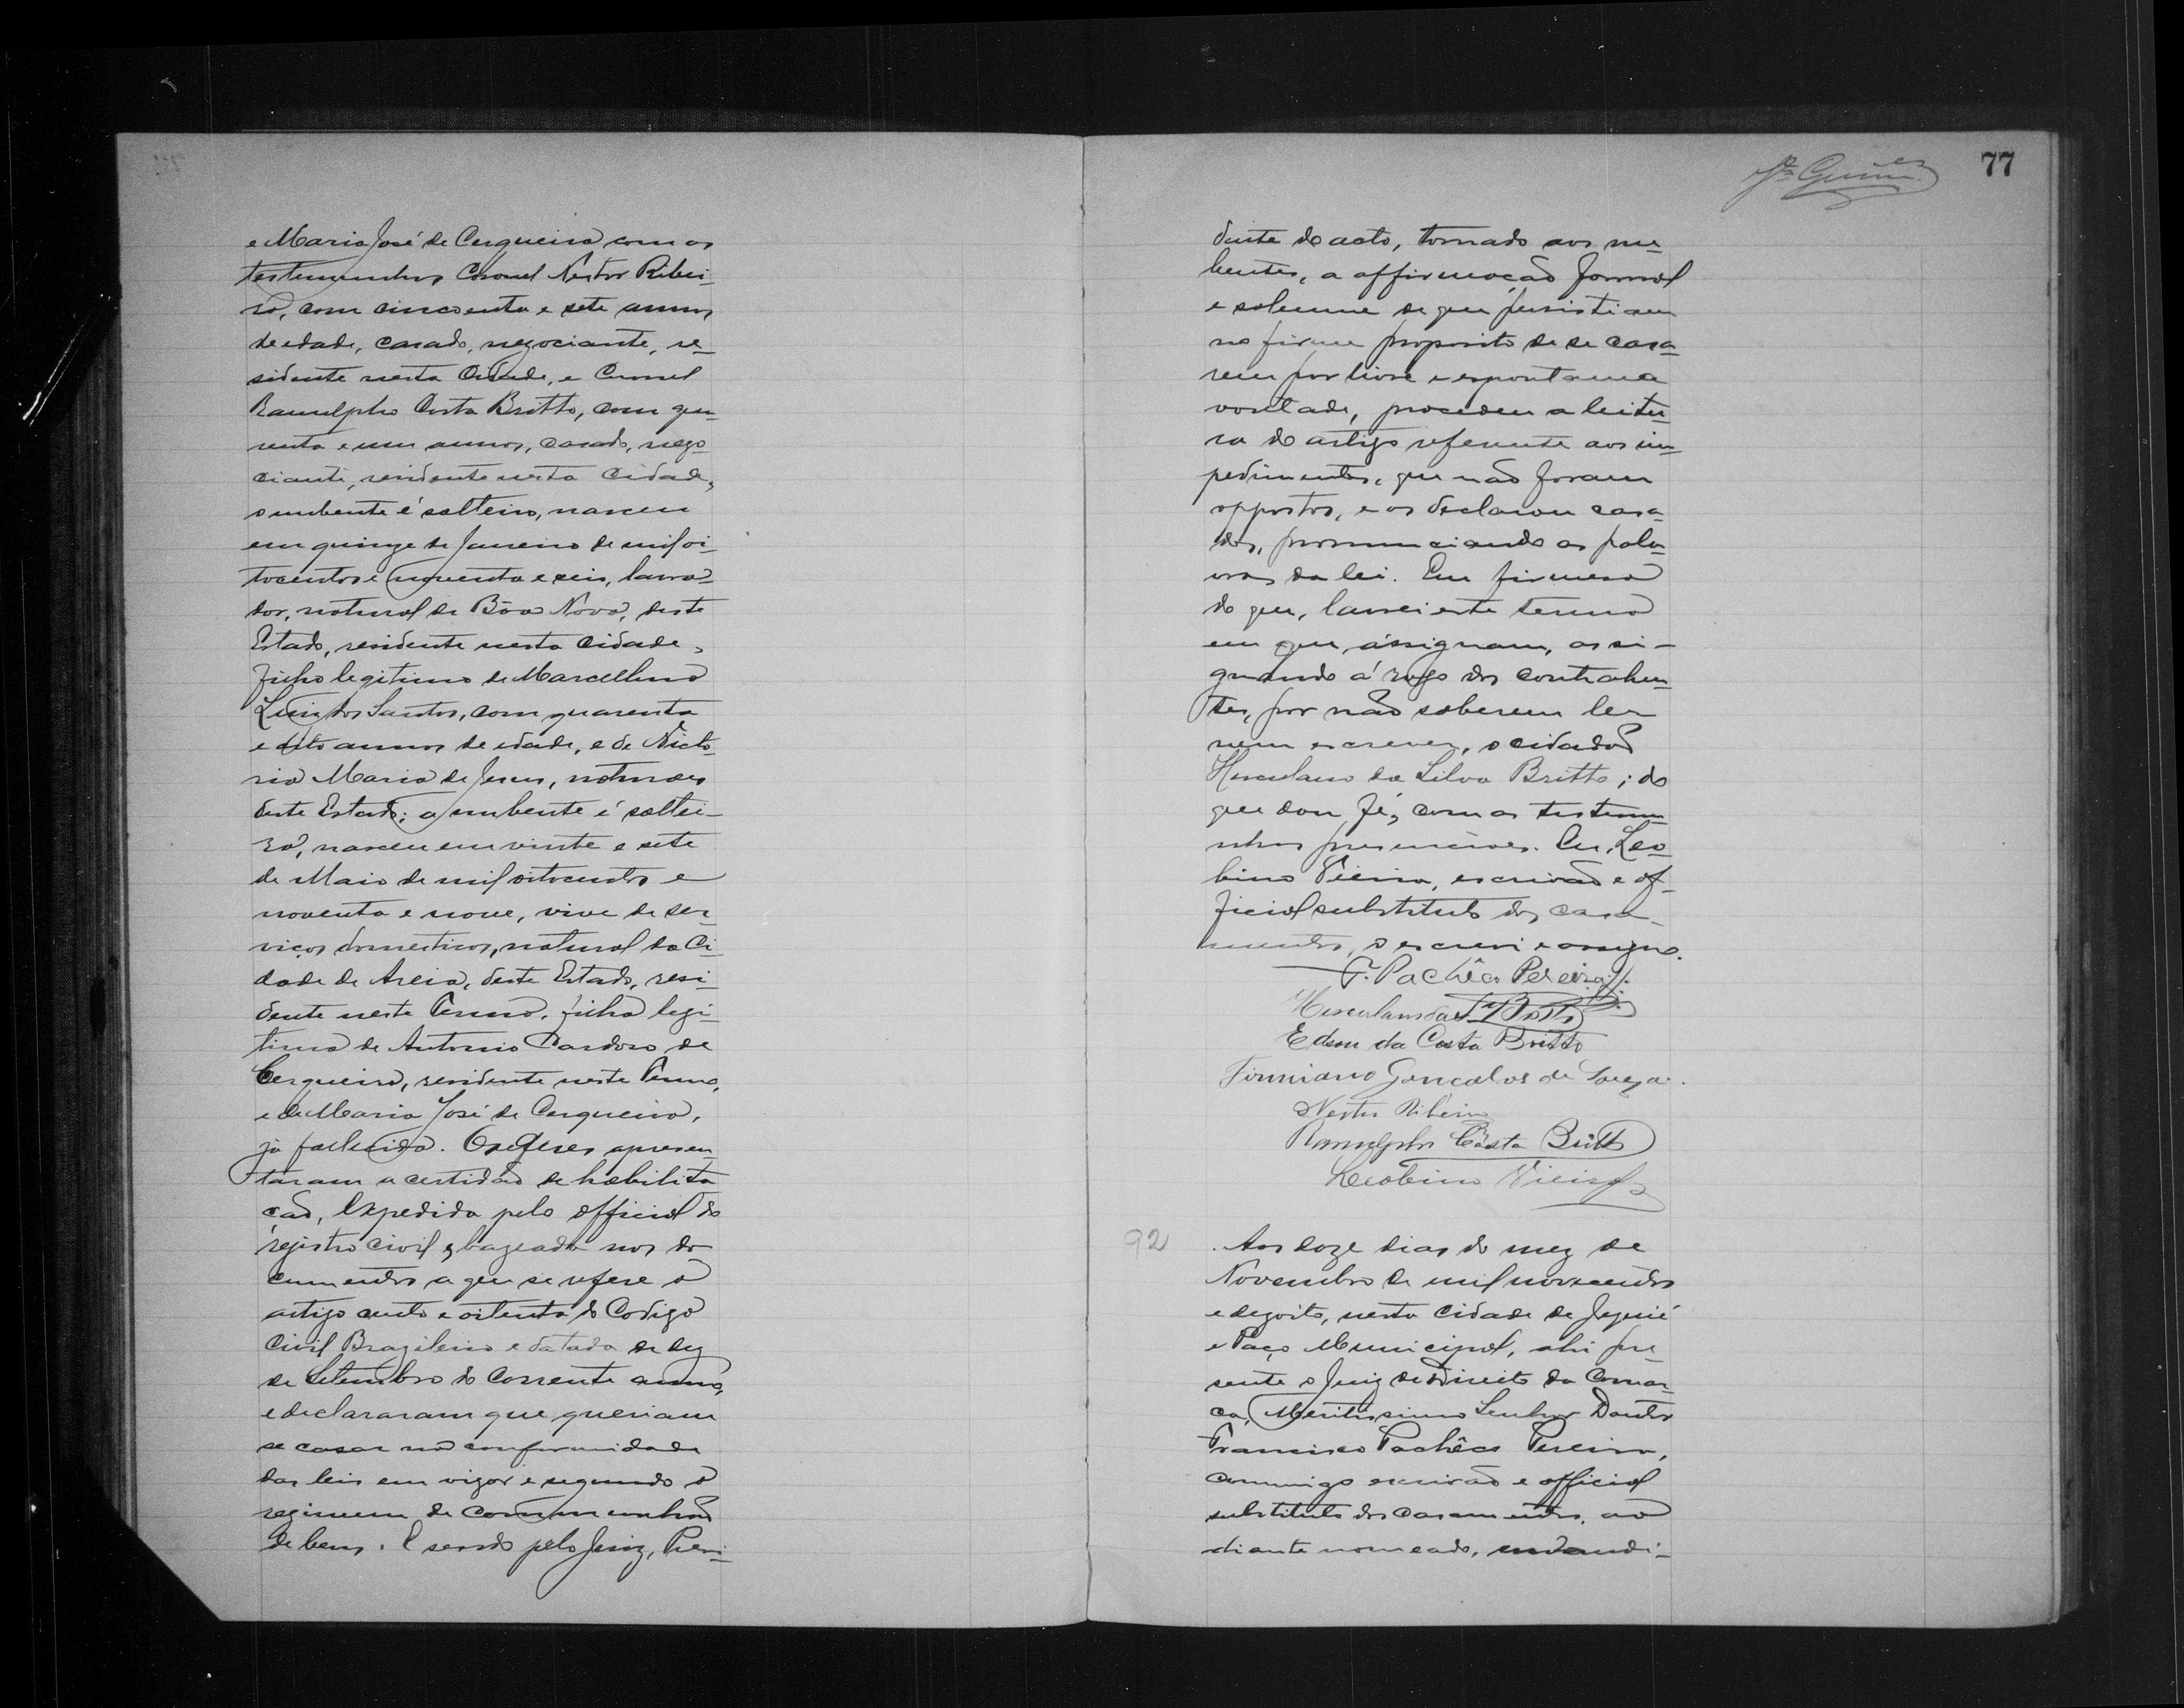 e Maria José de Cerqueira com as
testemunhas Coronel Nestor Ribei-
ro, com cincoenta e sete annos
de edade, casado, negociante, re-
sidente nesta Cidade, e Coronel
Ranulpho Costa Britto, com qua-
renta e um annos, casado, nego-
ciante, residente nesta Cidade,
o nubente é solteiro, nasceu
em quinze de Janeiro de mil oi-
tocentos e noventa e seis, lavra-
dor, natural de Bôa Nova, deste
Estado, residente nesta Cidade,
filho legitimo de Marcellino
Luiz dos Santos, com quarenta
e oito annos de edade, e de Victo-
ria Maria de Jesus, naturaes
deste Estado; a nubente é soltei-
ra, nasceu em vinte e sete
de Maio de mil oitocentos e
noventa e nove, vive de ser-
viços domesticos, natural da Ci-
dade de Areia, deste Estado, resi-
dente neste Termo, filha legi-
tima de Antonio Cardoso de
Cerqueira, residente neste Termo,
e de Maria José de Cerqueira,
já fallecida. Os quaes apresen-
taram a certidão de habilita-
ção, expedida pelo official do
registro civil, bazeada nos do-
cumentos a que se refere o
artigo cento e oitenta do Codigo
Civil Brazileiro e datada de dez
de Setembro do corrente anno,
e declararam que queriam
se casar na conformidade
das leis em vigor e segundo o
regimem de communhão
de bens. E sendo pelo Juiz, Presi-
77
dente do acto, tomado aos nu-
bentes, a affirmação formal
e solemne de que persistiam
no firme proposito de se casa-
rem por livre e espontanea
vontade, procedeu a leitu-
ra do artigo referente aos im-
pedimentos, que não foram
oppostos, e os declarou casa-
dos, pronunciando as pala-
vras da lei. Em firmeza
do que, lavrei este termo
em que assignam, assi-
gnando á rogo dos contrahen-
tes, por não saberem ler
nem escrever, o cidadão
Herculano da Silva Britto; do
que dou fé, com as testemu-
nhas presenciaes. Eu, Leo-
bino Vieira, escrivão e of-
ficial substituto dos casa-
mentos, o escrevi e assigno.
F. Pachêco Pereira
Herculano da Sª Britto
Edson da Costa Britto
Firmiano Goncalves de Souza.
Nestor Ribeiro
Ranulpho Costa Britto
Leobino Vieira
92
Aos doze dias do mez de
Novembro de mil novecentos
e dezoito, nesta Cidade de Jequié
e Paço Municipal, ahi pre-
sente o Juiz de Direito da Comar-
ca, Meritissimo Senhor Doutor
Francisco Pachêco Pereira,
commigo escrivão e official
substituto dos casamentos, ao
diante nomeado,